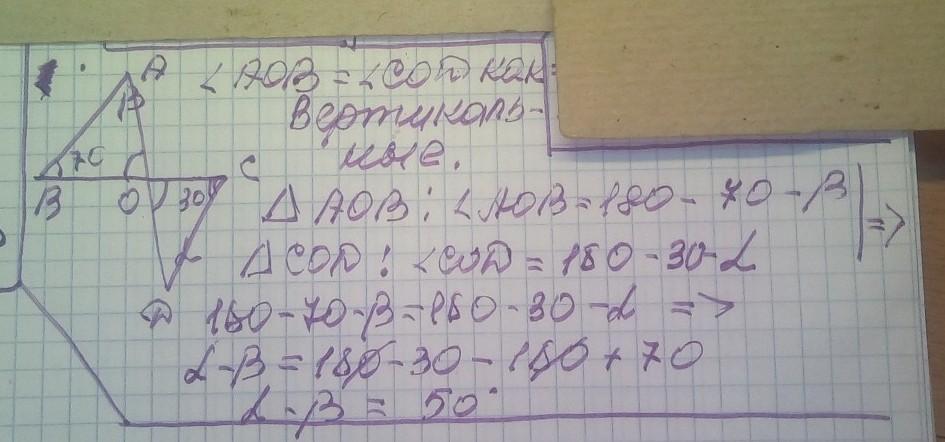 1.
A
β
70
C
B
O
30
α
D
∠AOB = ∠COD как
вертикаль-
ные.
△ AOB : ∠AOB = 180 - 70 - β
=>
△ COD : ∠COD = 180 - 30 - α
180 - 70 - β = 180 - 30 - α =>
α - β = 180 - 30 - 180 + 70
α - β = 50°